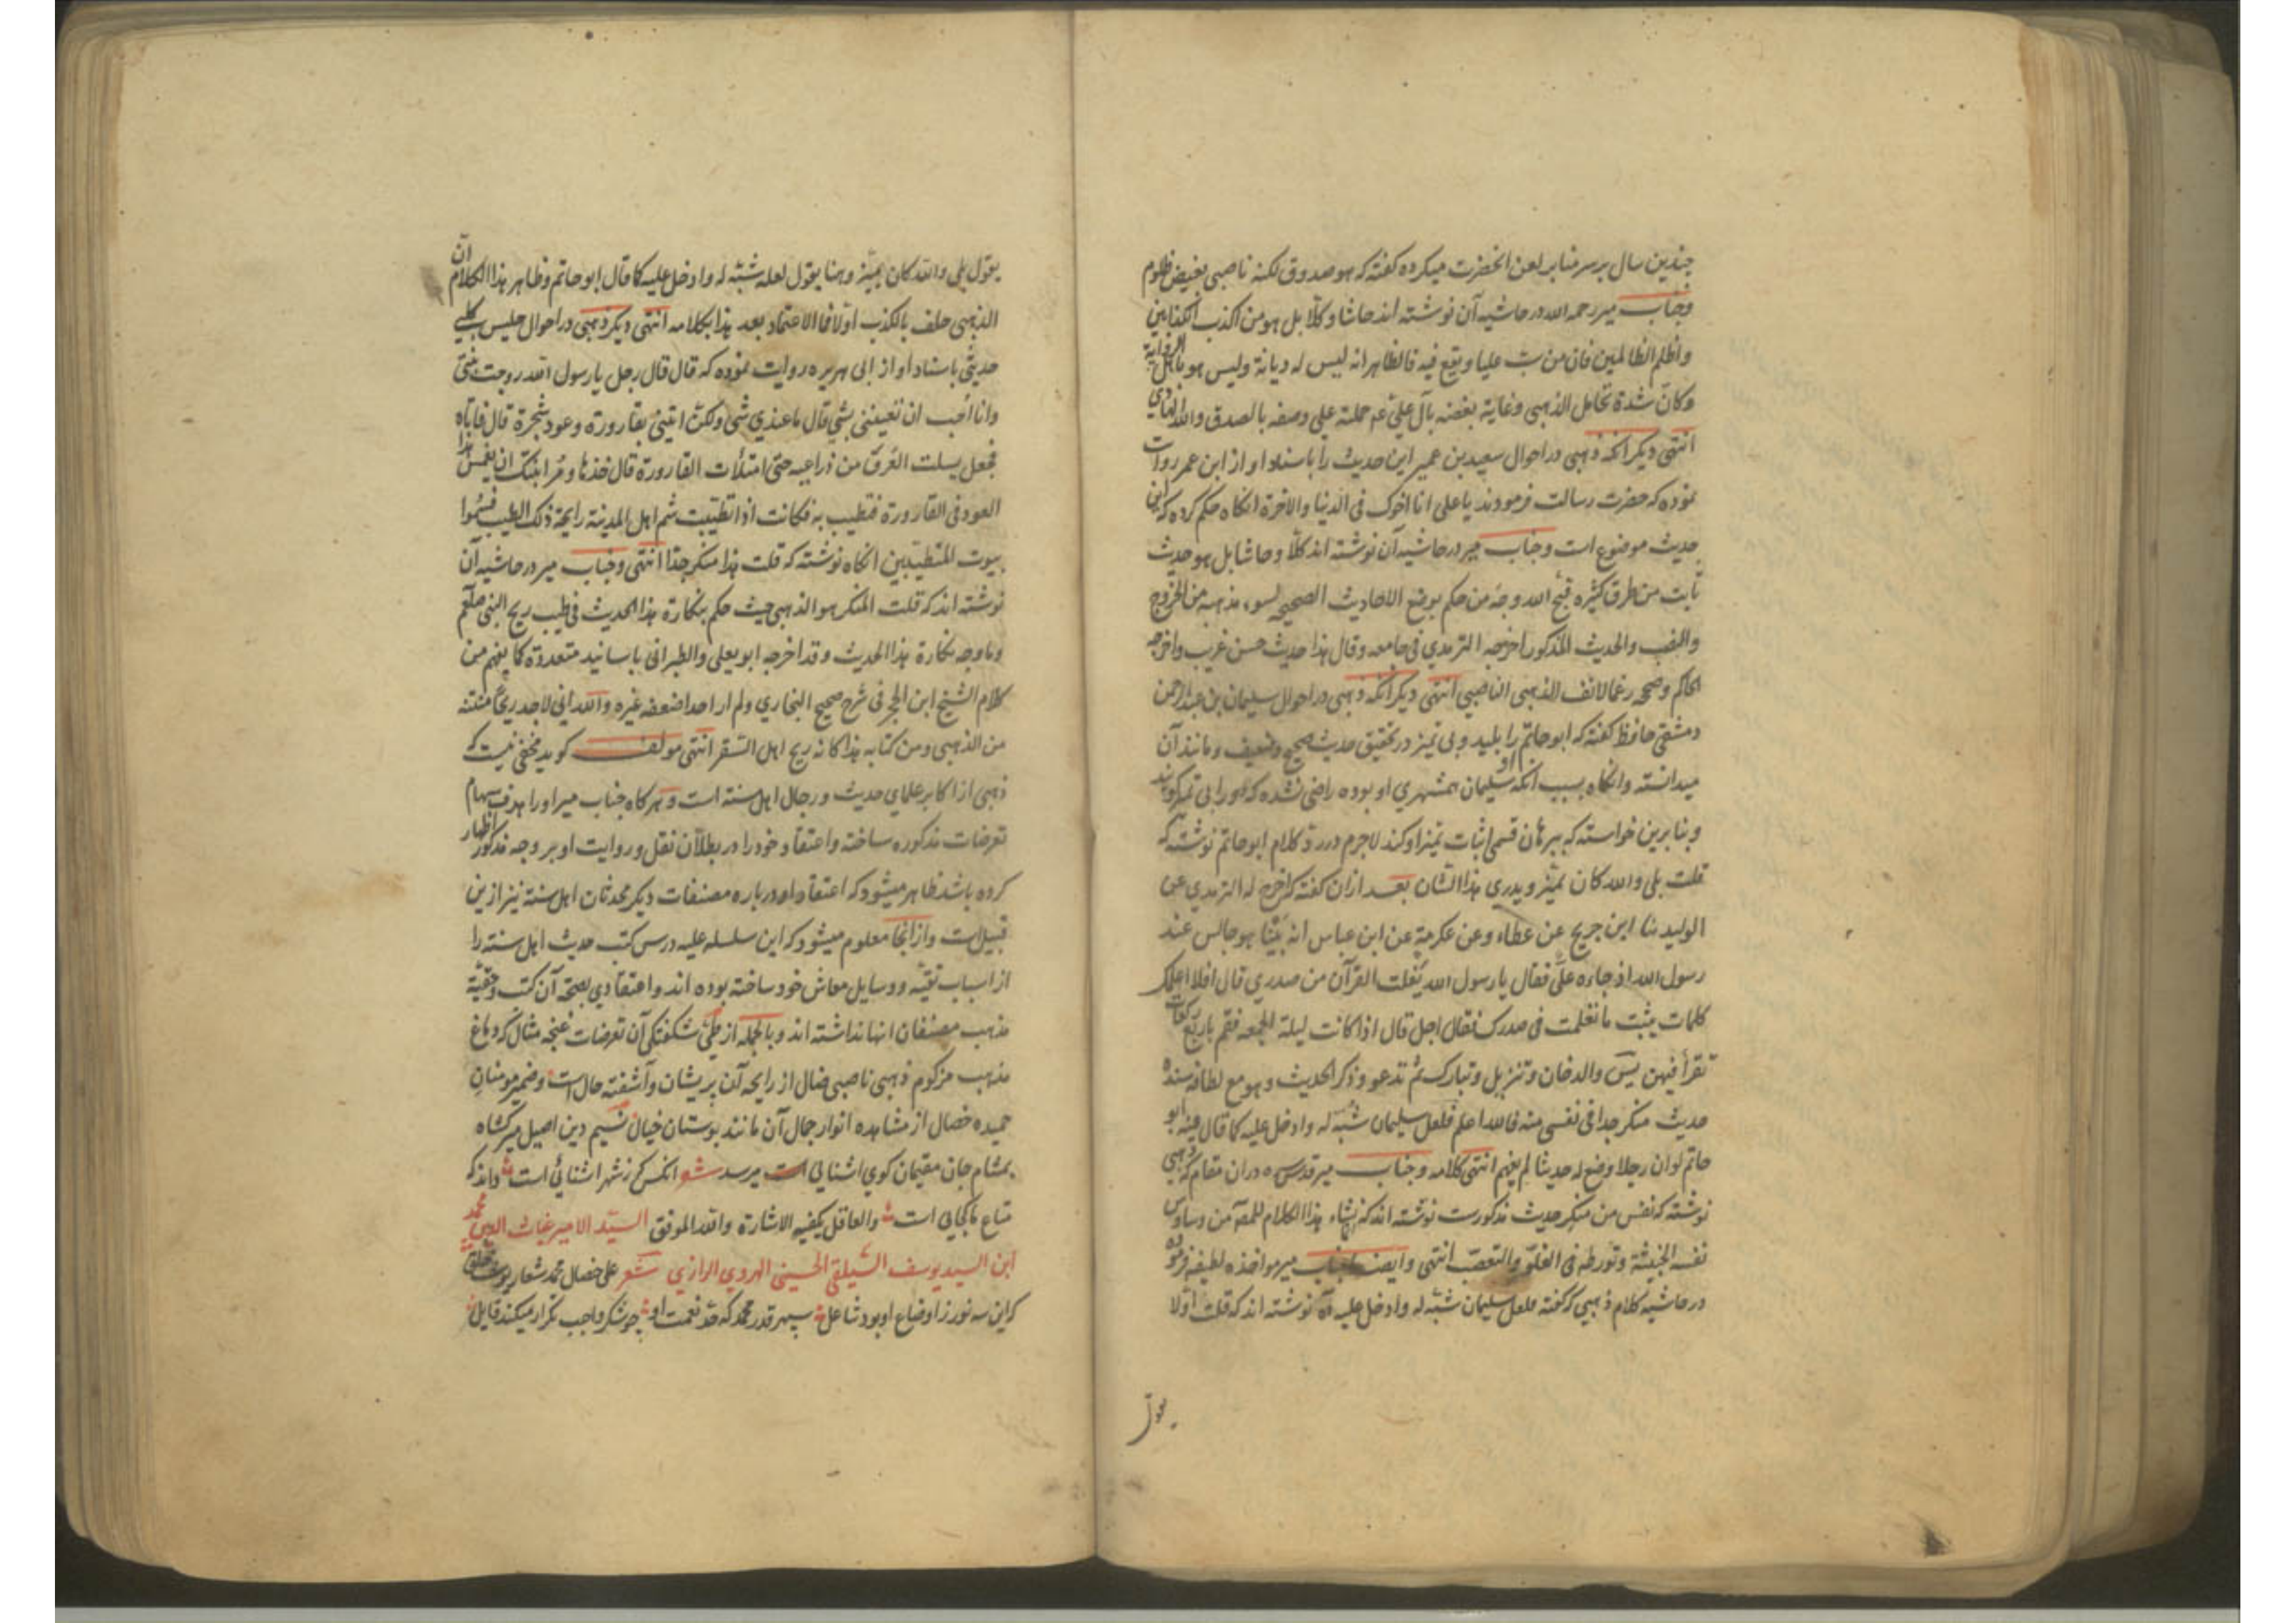 چندین سال بر سر منابر لعن انحضرت میکرده کفته که هو صدوق لکنه ناصبی بغیض ظلوم
وجناب میر رحمه الله در حاشیه آن نوشته اند حاشا وکلا بل هو من اکذب الکذابین
واظلم الظالمین فان من سب علیا ویقع فیه فالظاهر انه لیس له دیانة ولیس هو باهل الروایة
وکان شدة تحامل الذهبی وغایة بغضه بآل علی عم حملته علی وصفه بالصدق والله الهادی
انتهی دیکر انکه ذهبی در احوال سعید بن عمیر این حدیث را باسناد او از ابن عمر روایت
نموده که حضرت رسالت فرمودند یا علی انا اخوک فی الدنیا والاخرة انکاه حکم کرده که این
حدیث موضوع است وجناب میر در حاشیه آن نوشته اند کلّا وحاشا بل هو حدیث
ثابت من طرق کثیره قبح الله وجه من حکم بوضع الاحادیث الصحیحه لسوء مذهبه من الخروج
والنصب والحدیث المذکور اخرجه الترمدی فی جامعه وقال هذا حدیث حسن غریب واخرجه
الحاکم وصححه رغما لانف الذهبی الناصبی انتهی دیکر آنکه ذهبی در احوال سلیمان بن عبد الرحمن
دمشقی حافظ کفته که ابو حاتم او را بلید وبی تمیز در تحقیق حدیث صحیح وضعیف ومانند آن
میدانسته وانکاه بسبب انکه سلیمان همشهری او بوده راضی نشده که او را بی تمیز کویند
وبنابرین خواسته که ببرهان قسمی اثبات تمیز او کند لاجرم در رد کلام ابو حاتم نوشته که
قلت بلی والله کان یمیّز ویدری هذا الشان بعد ازان کفته که اخرج له الترمدی عن
الولید ثنا ابن جریج عن عطاء وعن عکرمة عن ابن عباس انه بَیْنا هو جالس عند
رسول الله اذ جاءه علیّ فقال یا رسول الله تفلت القرآن من صدری قال افلا اعلمک
کلمات یثبت ما تعلمت فی صدرک فقال اجل قال اذا کانت لیلة الجمعه فقم باربع رکعات
تقرأ فیهن یس والدخان وتنزیل وتبارک ثم تدعو وذکر الحدیث وهو مع لطافة سنده
حدیث منکر جدا فی نفسی منه فالله اعلم فلعل سلیمان شبّه له وادخل علیه کما قال فیه ابو
حاتم لو ان رجلا وضع له حدیثا لم یفهم انتهی کلامه وجناب میر قدس سره دران مقام که ذهبی
نوشته که نفس من منکر حدیث مذکورست نوشته اند که نشاء هذا الکلام للمصم من وساوس
نفسه الخبیثة وتورطه فی الغلوّ والتعصّب انتهی وایضا جناب میر مواخذه لطیفه فرموده
در حاشیه کلام ذهبی که کفته فلعل سلیمان شبّه له وادخل علیه نوشته اند که قلت اوّلا
یقول
یقول بلی والله کان یمیّز وهنا یقول لعله شبّه له وادخل علیه کما قال ابو حاتم وظاهر هذا الکلام انّ
الذهبی حلف بالکذب اوّلا فما الاعتماد بعد هذا بکلامه انتهی دیکر ذهبی در احوال حلیس کلبی
حدیثی باسناد او از ابی هریره روایت نموده که قال قال رجل یا رسول الله زوجت بنتی
وانا أحب ان تعیننی بشی قال ما عندی شی ولکن ایتنی بقارورة وعود شجرة قال فاتاه
فجعل یسلت العَرق من ذراعیه حتی امتلأت القارورة قال خذها ومُر ابنتک ان یغمس هذا
العود فی القارورة فتطیب به فکانت اذا تطیّبت شم اهل المدینة رایحة ذلک الطیب فسُمّوا
بیوت المتطیّبین انکاه نوشته که قلت هذا منکر جدا انتهی وجناب میر در حاشیه آن
نوشته اند که قلت المنکر هو الذهبی حیث حکم بنکارة هذا الحدیث فی طیب ریح النبی صلعم
وما وجه نکارة هذا الحدیث وقد اخرجه ابو یعلی والطبرانی باسانید متعددة کما یفهم من
کلام الشیخ ابن الحجر فی شرح صحیح البخاری ولم ار احدا ضعفه غیره والله انی لاجد ریحًا منتنة
من الذهبی ومن کتابه هذا کانه ریح اهل السّقر انتهی مولف کوید مخفی نیست که
ذهبی از اکابر علمای حدیث ورجال اهل سنة است وهر کاه جناب میر او را هدف سهام
تعرضات مذکوره ساخته واعتقاد خود را در بطلان نقل وروایت او بر وجه مذکور اظهار
کرده باشد ظاهر میشود که اعتقاد او درباره مصنفات دیکر محدثان اهل سنة نیز ازین
قبیل است وازانجا معلوم میشود که این سلسله علیه درس کتب حدیث اهل سنة را
از اسباب تقیّه ووسایل معاش خود ساخته بوده اند واعتقادی بصحة آن کتب وحقیّة
مذهب مصنفان انها نداشته اند وبالجمله از طیّ شکفتکی آن تعرضات غنچه مثال که دماغ
مذهب مزکوم ذهبی ناصبی ضال از رایحه آن پریشان وآشفته حال است وضمیر مومنان
حمیده خصال از مشاهده انوار جمال آن مانند بوستان خیال نسیم دین اصیل میر کشاه
بمشام جان مقیمان کوی اشنایی است میرسد شعر انکس که ز شهر اشنائی است داند که
متاع ما کجایی است والعاقل یکفیه الاشارة والله الموفق السیّد الامیر غیاث الدین محمد
ابن السید یوسف الشیلقی الحسینی الهروی الرازی شعر علی خصال محمد شعار یوسف خلق
که این سه نور ز اوضاع او بود شاعل سپهر قدر محمد که حمد نعمت او چو شکر واجب تکرار میکند قایل